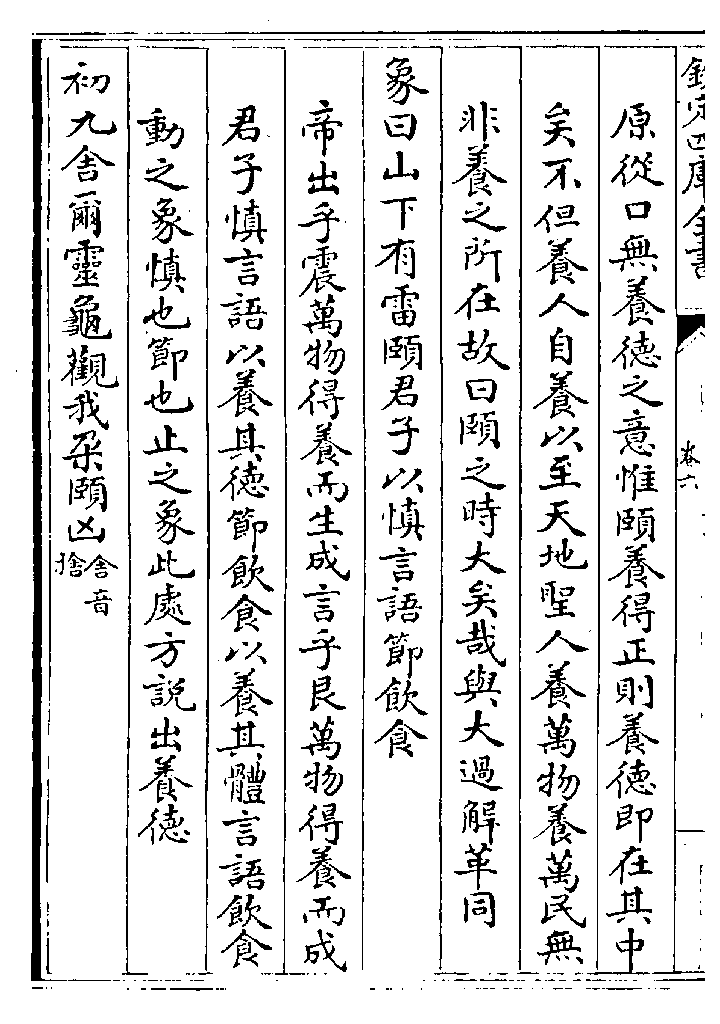 欽定四庫全書
卷六
原從口無養德之意惟頤養得正則養德即在其中
矣不但養人自養以至天地聖人養萬物養萬民無
非養之所在故曰頤之時大矣哉與大過解革同
象曰山下有雷頤君子以慎言語節飲食
帝出乎震萬物得養而生成言乎艮萬物得養而成
君子慎言語以養其德節飲食以養其體言語飲食
動之象慎也節也止之象此處方説出養德
初九舍爾靈龜觀我朶頤凶舍音捨